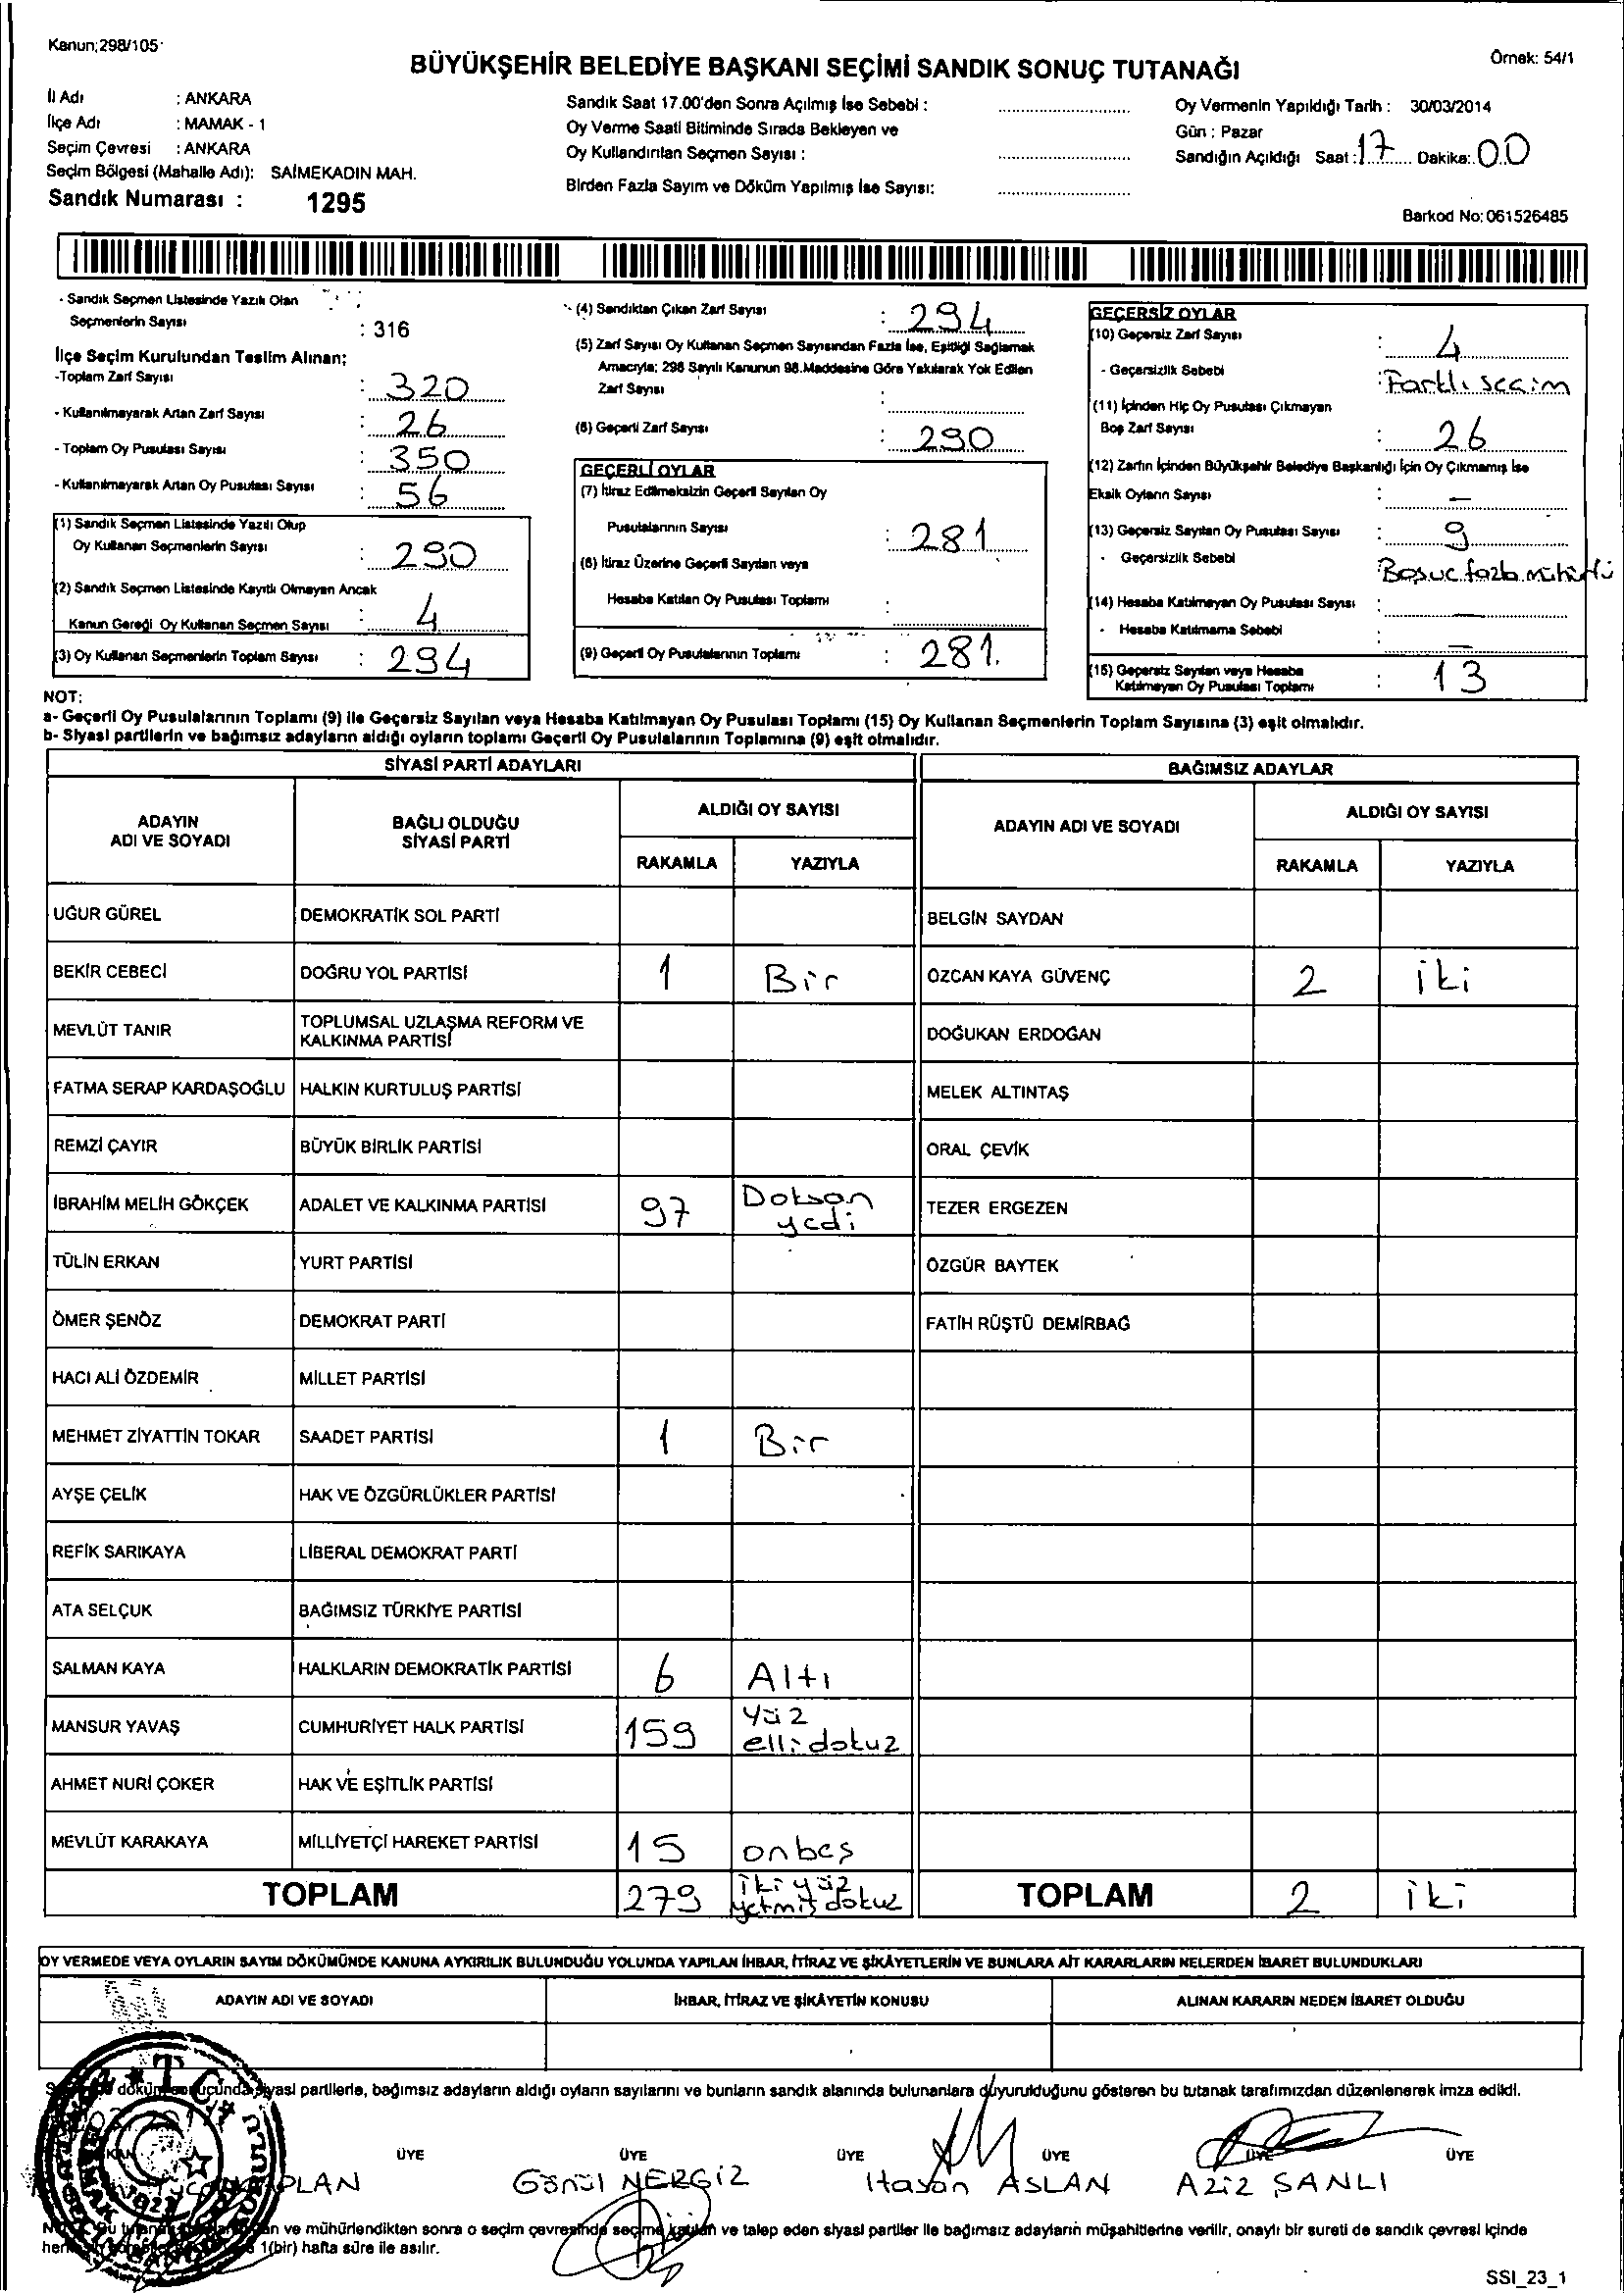 Kanun;298/105
Örnek: 54/1
BÜYÜKŞEHİR BELEDİYE BAŞKANI SEÇİMİ SANDIK SONUÇ TUTANAĞI
İl Adı : ANKARA
İlçe Adı : MAMAK - 1
Seçim Çevresi : ANKARA
Seçim Bölgesi (Mahalle Adı): SAİMEKADIN MAH.
Sandık Numarası : 1295
Sandık Saat 17.00'den Sonra Açılmış İse Sebebi :
Oy Verme Saati Bitiminde Sırada Bekleyen ve
Oy Kullandırılan Seçmen Sayısı :
Birden Fazla Sayım ve Döküm Yapılmış İse Sayısı:
Oy Vermenin Yapıldığı Tarih : 30/03/2014
Gün : Pazar
Sandığın Açıldığı Saat : 17 Dakika: 00
Barkod No: 061526485
- Sandık Seçmen Listesinde Yazılı Olan
Seçmenlerin Sayısı : 316
İlçe Seçim Kurulundan Teslim Alınan;
-Toplam Zarf Sayısı : 320
- Kullanılmayarak Artan Zarf Sayısı : 26
- Toplam Oy Pusulası Sayısı : 350
- Kullanılmayarak Artan Oy Pusulası Sayısı : 56
(1) Sandık Seçmen Listesinde Yazılı Olup
Oy Kullanan Seçmenlerin Sayısı : 290
(2) Sandık Seçmen Listesinde Kayıtlı Olmayan Ancak
Kanun Gereği Oy Kullanan Seçmen Sayısı : 4
(3) Oy Kullanan Seçmenlerin Toplam Sayısı : 294
(4) Sandıktan Çıkan Zarf Sayısı : 294
(5) Zarf Sayısı Oy Kullanan Seçmen Sayısından Fazla İse, Eşitliği Sağlamak
Amacıyla; 298 Sayılı Kanunun 98.Maddesine Göre Yakılarak Yok Edilen
Zarf Sayısı :
(6) Geçerli Zarf Sayısı : 290
GEÇERLİ OYLAR
(7) İtiraz Edilmeksizin Geçerli Sayılan Oy
Pusulalarının Sayısı : 281
(8) İtiraz Üzerine Geçerli Sayılan veya
Hesaba Katılan Oy Pusulası Toplamı :
(9) Geçerli Oy Pusulalarının Toplamı : 281.
GEÇERSİZ OYLAR
(10) Geçersiz Zarf Sayısı : 4
- Geçersizlik Sebebi : Farklı seçim
(11) İçinden Hiç Oy Pusulası Çıkmayan
Boş Zarf Sayısı : 26
(12) Zarfın İçinden Büyükşehir Belediye Başkanlığı İçin Oy Çıkmamış İse
Eksik Oyların Sayısı : —
(13) Geçersiz Sayılan Oy Pusulası Sayısı : 9
- Geçersizlik Sebebi : Boş ve fazla mühürlü
(14) Hesaba Katılmayan Oy Pusulası Sayısı : —
- Hesaba Katılmama Sebebi : —
(15) Geçersiz Sayılan veya Hesaba
Katılmayan Oy Pusulası Toplamı : 13
NOT:
a- Geçerli Oy Pusulalarının Toplamı (9) ile Geçersiz Sayılan veya Hesaba Katılmayan Oy Pusulası Toplamı (15) Oy Kullanan Seçmenlerin Toplam Sayısına (3) eşit olmalıdır.
b- Siyasi partilerin ve bağımsız adayların aldığı oyların toplamı Geçerli Oy Pusulalarının Toplamına (9) eşit olmalıdır.
SİYASİ PARTİ ADAYLARI
BAĞIMSIZ ADAYLAR
ADAYIN
ADI VE SOYADI
BAĞLI OLDUĞU
SİYASİ PARTİ
ALDIĞI OY SAYISI
RAKAMLA YAZIYLA
ADAYIN ADI VE SOYADI
ALDIĞI OY SAYISI
RAKAMLA YAZIYLA
UĞUR GÜREL DEMOKRATİK SOL PARTİ BELGİN SAYDAN
BEKİR CEBECİ DOĞRU YOL PARTİSİ 1 Bir ÖZCAN KAYA GÜVENÇ 2 iki
MEVLÜT TANIR TOPLUMSAL UZLAŞMA REFORM VE
KALKINMA PARTİSİ DOĞUKAN ERDOĞAN
FATMA SERAP KARDAŞOĞLU HALKIN KURTULUŞ PARTİSİ MELEK ALTINTAŞ
REMZİ ÇAYIR BÜYÜK BİRLİK PARTİSİ ORAL ÇEVİK
İBRAHİM MELİH GÖKÇEK ADALET VE KALKINMA PARTİSİ 97 Doksan
yedi TEZER ERGEZEN
TÜLİN ERKAN YURT PARTİSİ ÖZGÜR BAYTEK
ÖMER ŞENÖZ DEMOKRAT PARTİ FATİH RÜŞTÜ DEMİRBAĞ
HACI ALİ ÖZDEMİR MİLLET PARTİSİ
MEHMET ZİYATTİN TOKAR SAADET PARTİSİ 1 Bir
AYŞE ÇELİK HAK VE ÖZGÜRLÜKLER PARTİSİ
REFİK SARIKAYA LİBERAL DEMOKRAT PARTİ
ATA SELÇUK BAĞIMSIZ TÜRKİYE PARTİSİ
SALMAN KAYA HALKLARIN DEMOKRATİK PARTİSİ 6 Altı
MANSUR YAVAŞ CUMHURİYET HALK PARTİSİ 159 yüz
elli dokuz
AHMET NURİ ÇOKER HAK VE EŞİTLİK PARTİSİ
MEVLÜT KARAKAYA MİLLİYETÇİ HAREKET PARTİSİ 15 onbeş
TOPLAM 279 İki yüz
yetmiş dokuz TOPLAM 2 iki
OY VERMEDE VEYA OYLARIN SAYIM DÖKÜMÜNDE KANUNA AYKIRILIK BULUNDUĞU YOLUNDA YAPILAN İHBAR, İTİRAZ VE ŞİKÂYETLERİN VE BUNLARA AİT KARARLARIN NELERDEN İBARET BULUNDUKLARI
ADAYIN ADI VE SOYADI İHBAR, İTİRAZ VE ŞİKÂYETİN KONUSU ALINAN KARARIN NEDEN İBARET OLDUĞU
siyasi partilerle, bağımsız adayların aldığı oyların sayılarını ve bunların sandık alanında bulunanlara duyurulduğunu gösteren bu tutanak tarafımızdan düzenlenerek imza edildi.
ÜYE ÜYE ÜYE ÜYE ÜYE ÜYE
Gönül NERGİZ Hasan ASLAN Aziz ŞANLI
ve mühürlendikten sonra o seçim çevresinde seçime katılan ve talep eden siyasi partiler ile bağımsız adayların müşahitlerine verilir, onaylı bir sureti de sandık çevresi içinde
1(bir) hafta süre ile asılır.
SSI_23_1